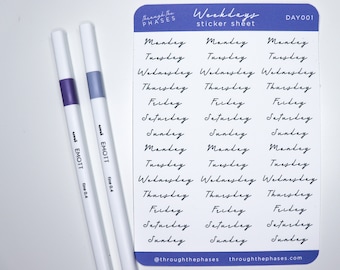 through the
PHASES
Weekdays
sticker sheet
DAY001
Monday Monday Monday
Tuesday Tuesday Tuesday
Wednesday Wednesday Wednesday
Thursday Thursday Thursday
Friday Friday Friday
Saturday Saturday Saturday
Sunday Sunday Sunday
Monday Monday Monday
Tuesday Tuesday Tuesday
Wednesday Wednesday Wednesday
Thursday Thursday Thursday
Friday Friday Friday
Saturday Saturday Saturday
Sunday Sunday Sunday
@throughthephases throughthephases.com
uni EMOTT fine 0.4
uni EMOTT fine 0.4